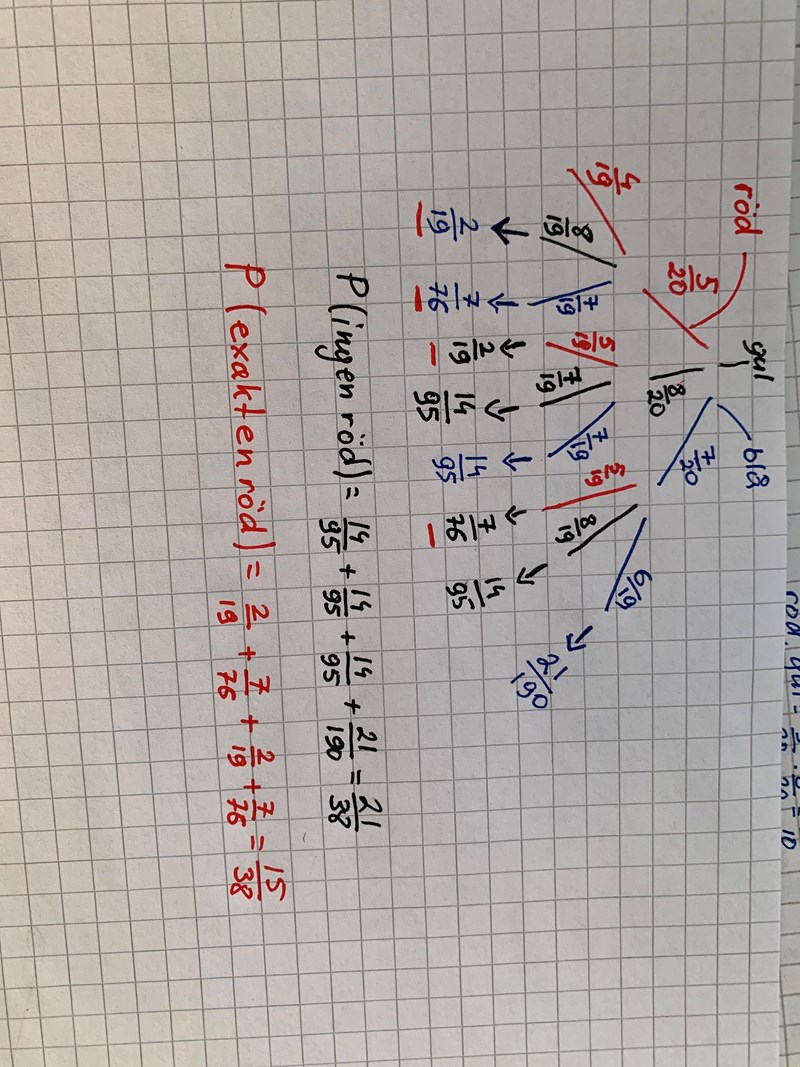 röd gul blå
5/20 8/20 7/20
4/19 8/19 7/19 5/19 7/19 7/19 5/19 8/19 6/19
↓ ↓ ↓ ↓ ↓ ↓ ↓ ↓
2/19 7/76 2/19 14/95 14/95 7/76 14/95 21/190
P(ingen röd) = 14/95 + 14/95 + 14/95 + 21/190 = 21/38
P(exakt en röd) = 2/19 + 7/76 + 2/19 + 7/76 = 15/38